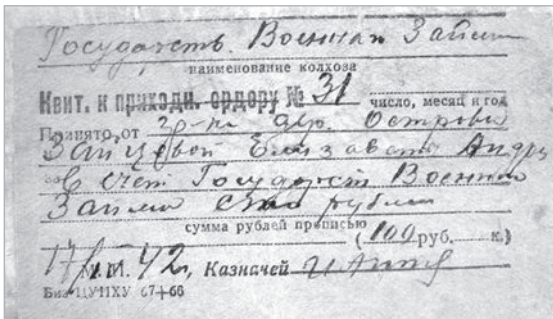 Государств. Военная Заем
наименование колхоза
Квит. к приходн. ордеру № 31
число, месяц и год
Принято от гр-ки дер. Острова
Зайцевой Елизавета Андр
за В счет Государст Военна
Займа сто рубли
сумма рублей прописью
(100 руб. к.)
42, Казначей
Биз ЦУНХУ 67+66